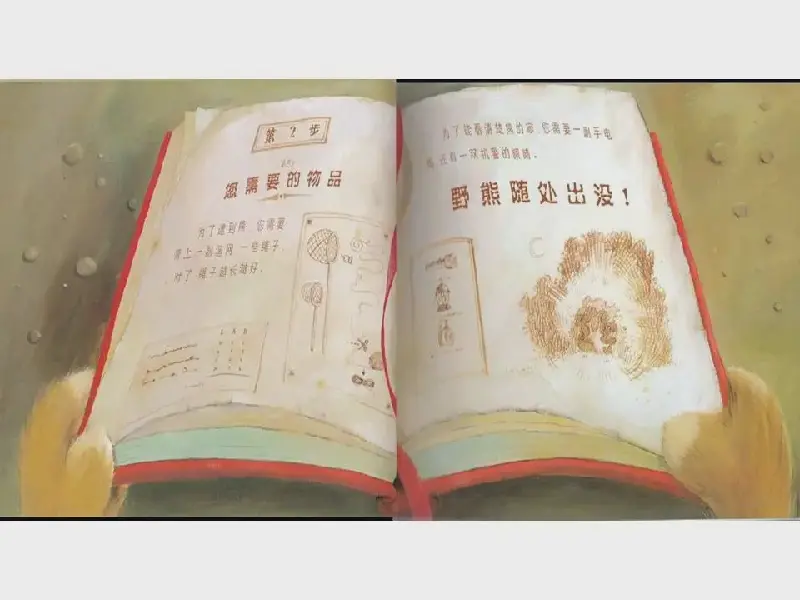 第 2 步
您需要的物品
为了逮到熊 您需要
带上一副渔网 一些绳子.
对了 绳子越长越好.
为了能看清楚熊出没 您需要一副手电
筒 还有一双机警的眼睛.
野熊随处出没！